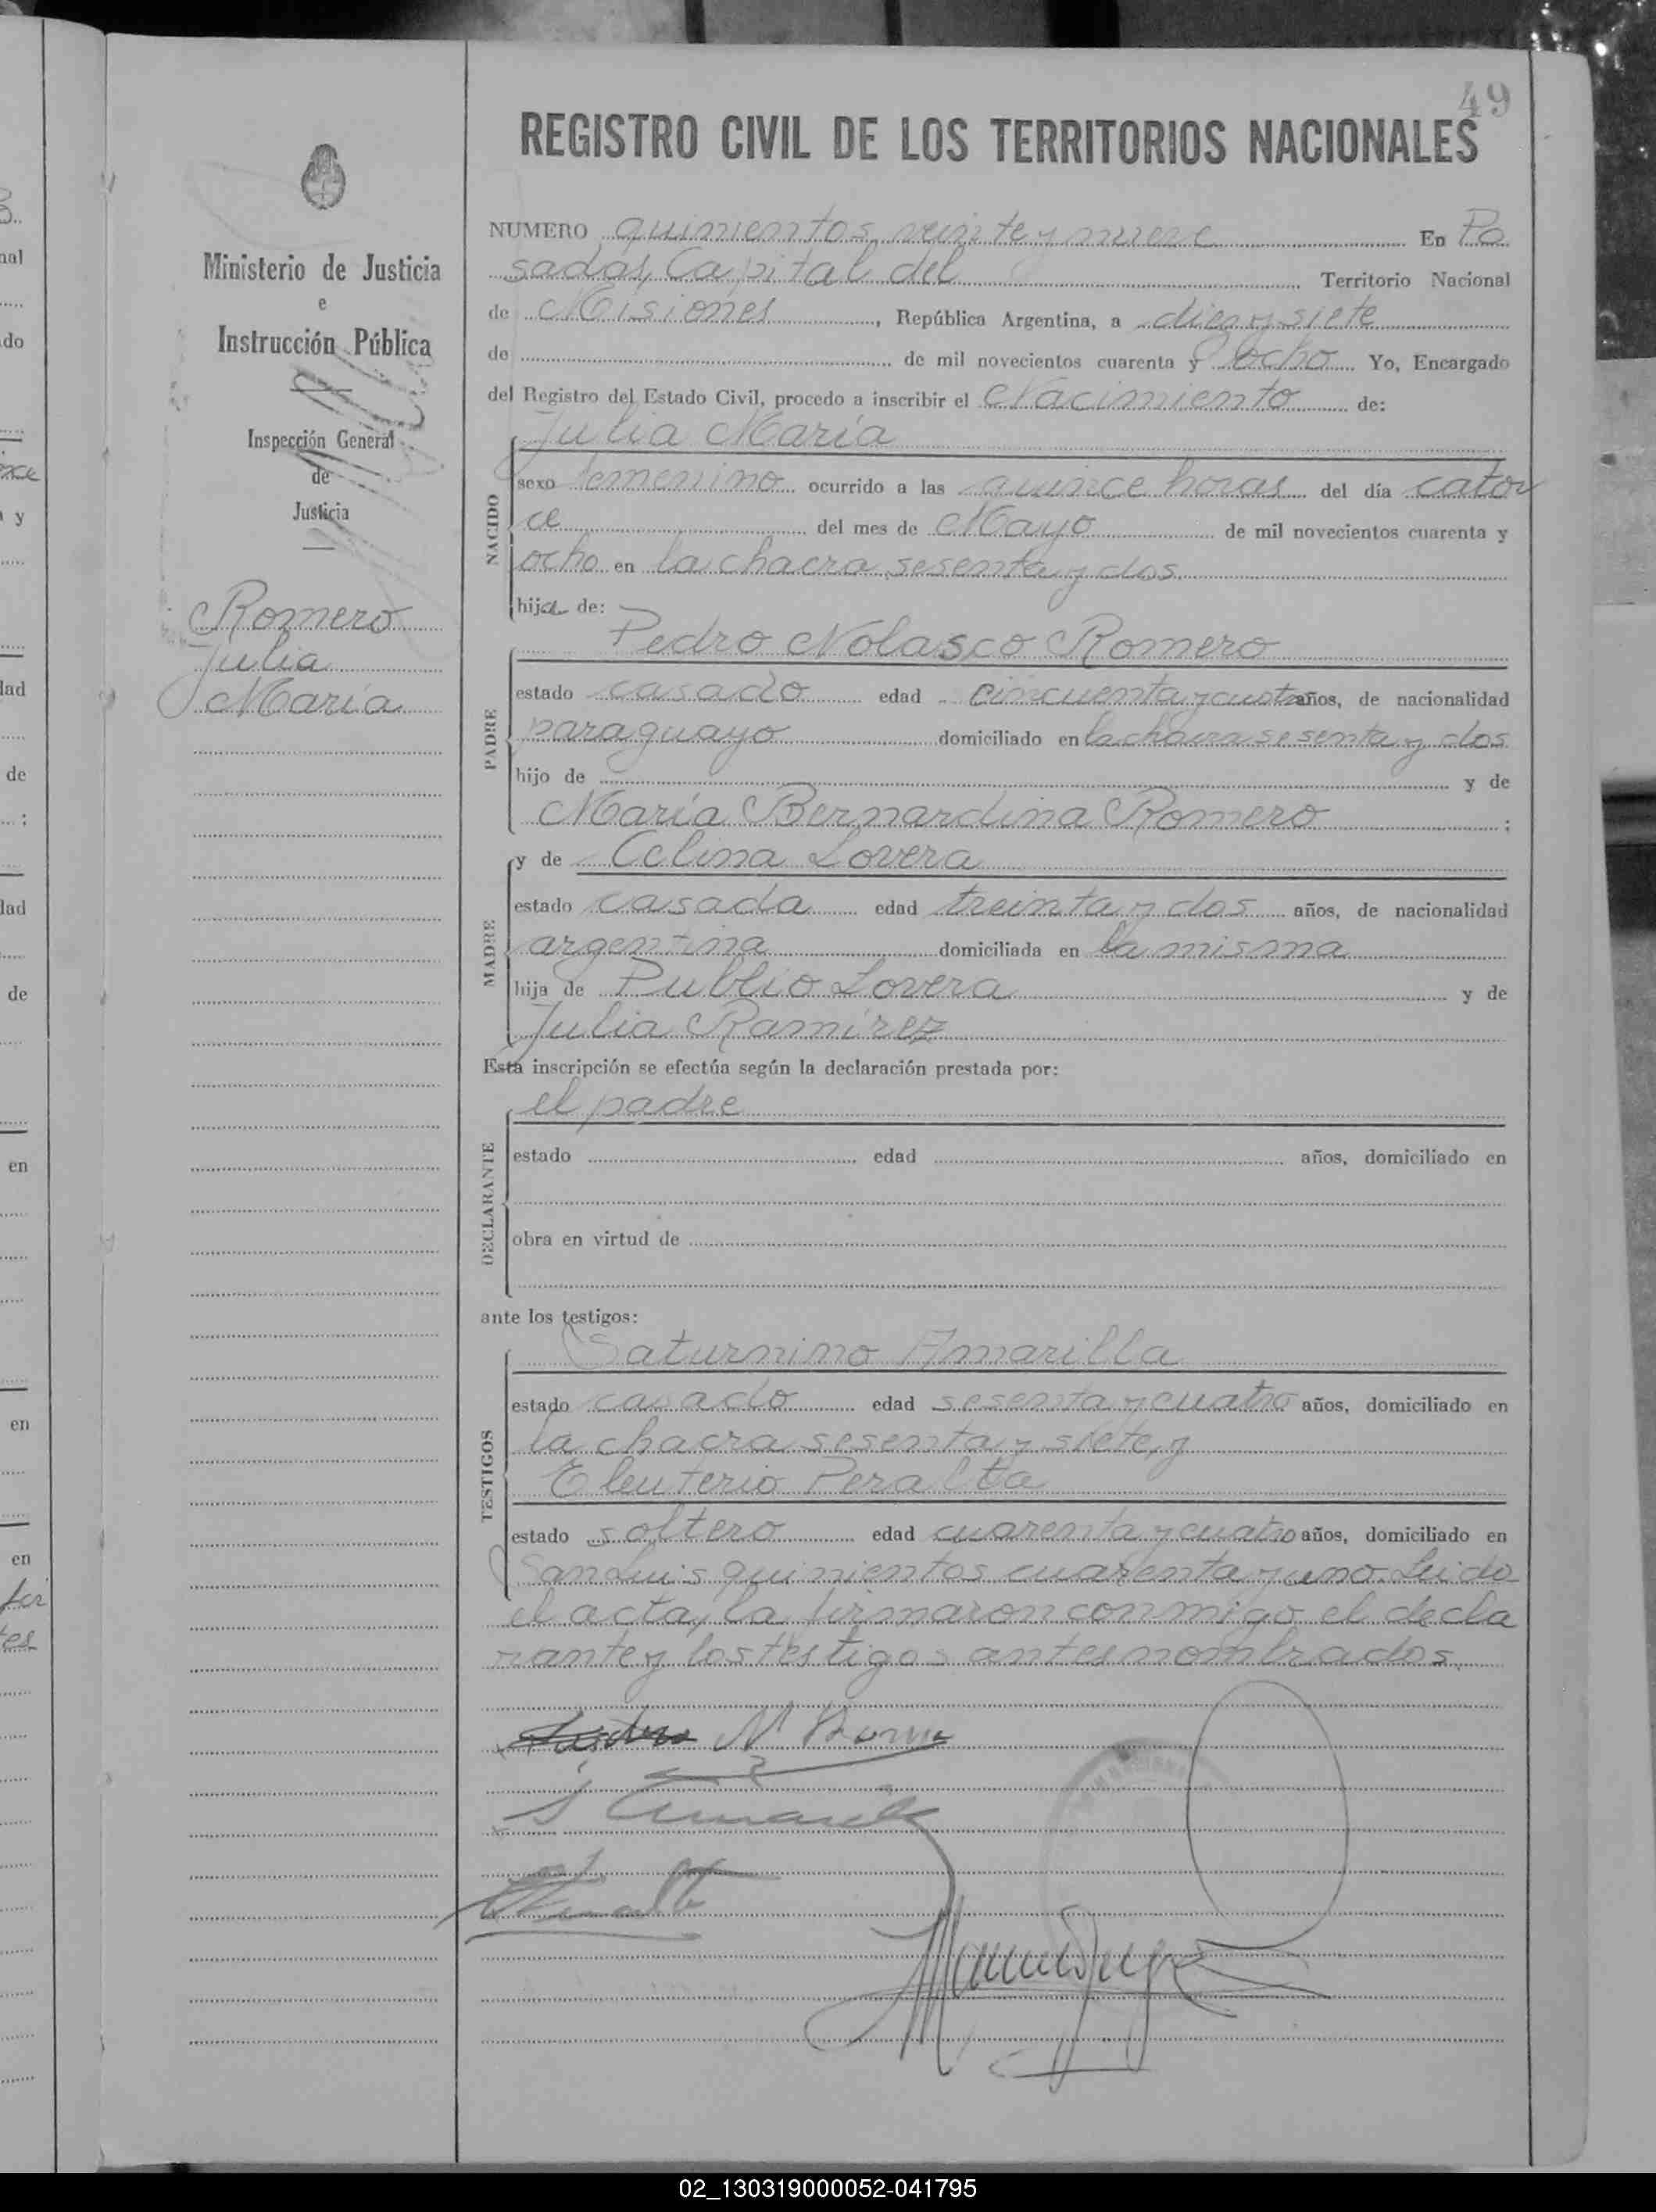 49
REGISTRO CIVIL DE LOS TERRITORIOS NACIONALES
Ministerio de Justicia
e
Instrucción Pública
Inspección General
de
Justicia
Romero
Julia
María
NUMERO quinientos veinte y nueve En Po
sadas, Capital del Territorio Nacional
de Misiones, República Argentina, a diez y siete
de de mil novecientos cuarenta y ocho Yo, Encargado
del Registro del Estado Civil, procedo a inscribir el Nacimiento de:
Julia María
NACIDO
sexo femenino ocurrido a las quince horas del día cator
ce del mes de Mayo de mil novecientos cuarenta y
ocho en la chacra sesenta y dos
hija de:
Pedro Nolasco Romero
PADRE
estado casado edad cincuenta y cuatro años, de nacionalidad
paraguayo domiciliado en la chacra sesenta y dos
hijo de y de
María Bernardina Romero ;
y de Celina Lovera
MADRE
estado casada edad treinta y dos años, de nacionalidad
argentina domiciliada en la misma
hija de Publio Lovera y de
Julia Ramírez
Esta inscripción se efectúa según la declaración prestada por:
el padre
DECLARANTE
estado edad años, domiciliado en
obra en virtud de
ante los testigos:
Saturnino Amarilla
TESTIGOS
estado casado edad sesenta y cuatro años, domiciliado en
la chacra sesenta y siete, y
Eleuterio Peralta
estado soltero edad cuarenta y cuatro años, domiciliado en
San Luis quinientos cuarenta y uno. Leido
el acta, la firmaron conmigo el decla
rante y los testigos antes nombrados.
Pedro N Romero
S Amarilla
E Peralta
nal
do
y
lad
de
:
lad
de
en
en
en
02_130319000052-041795